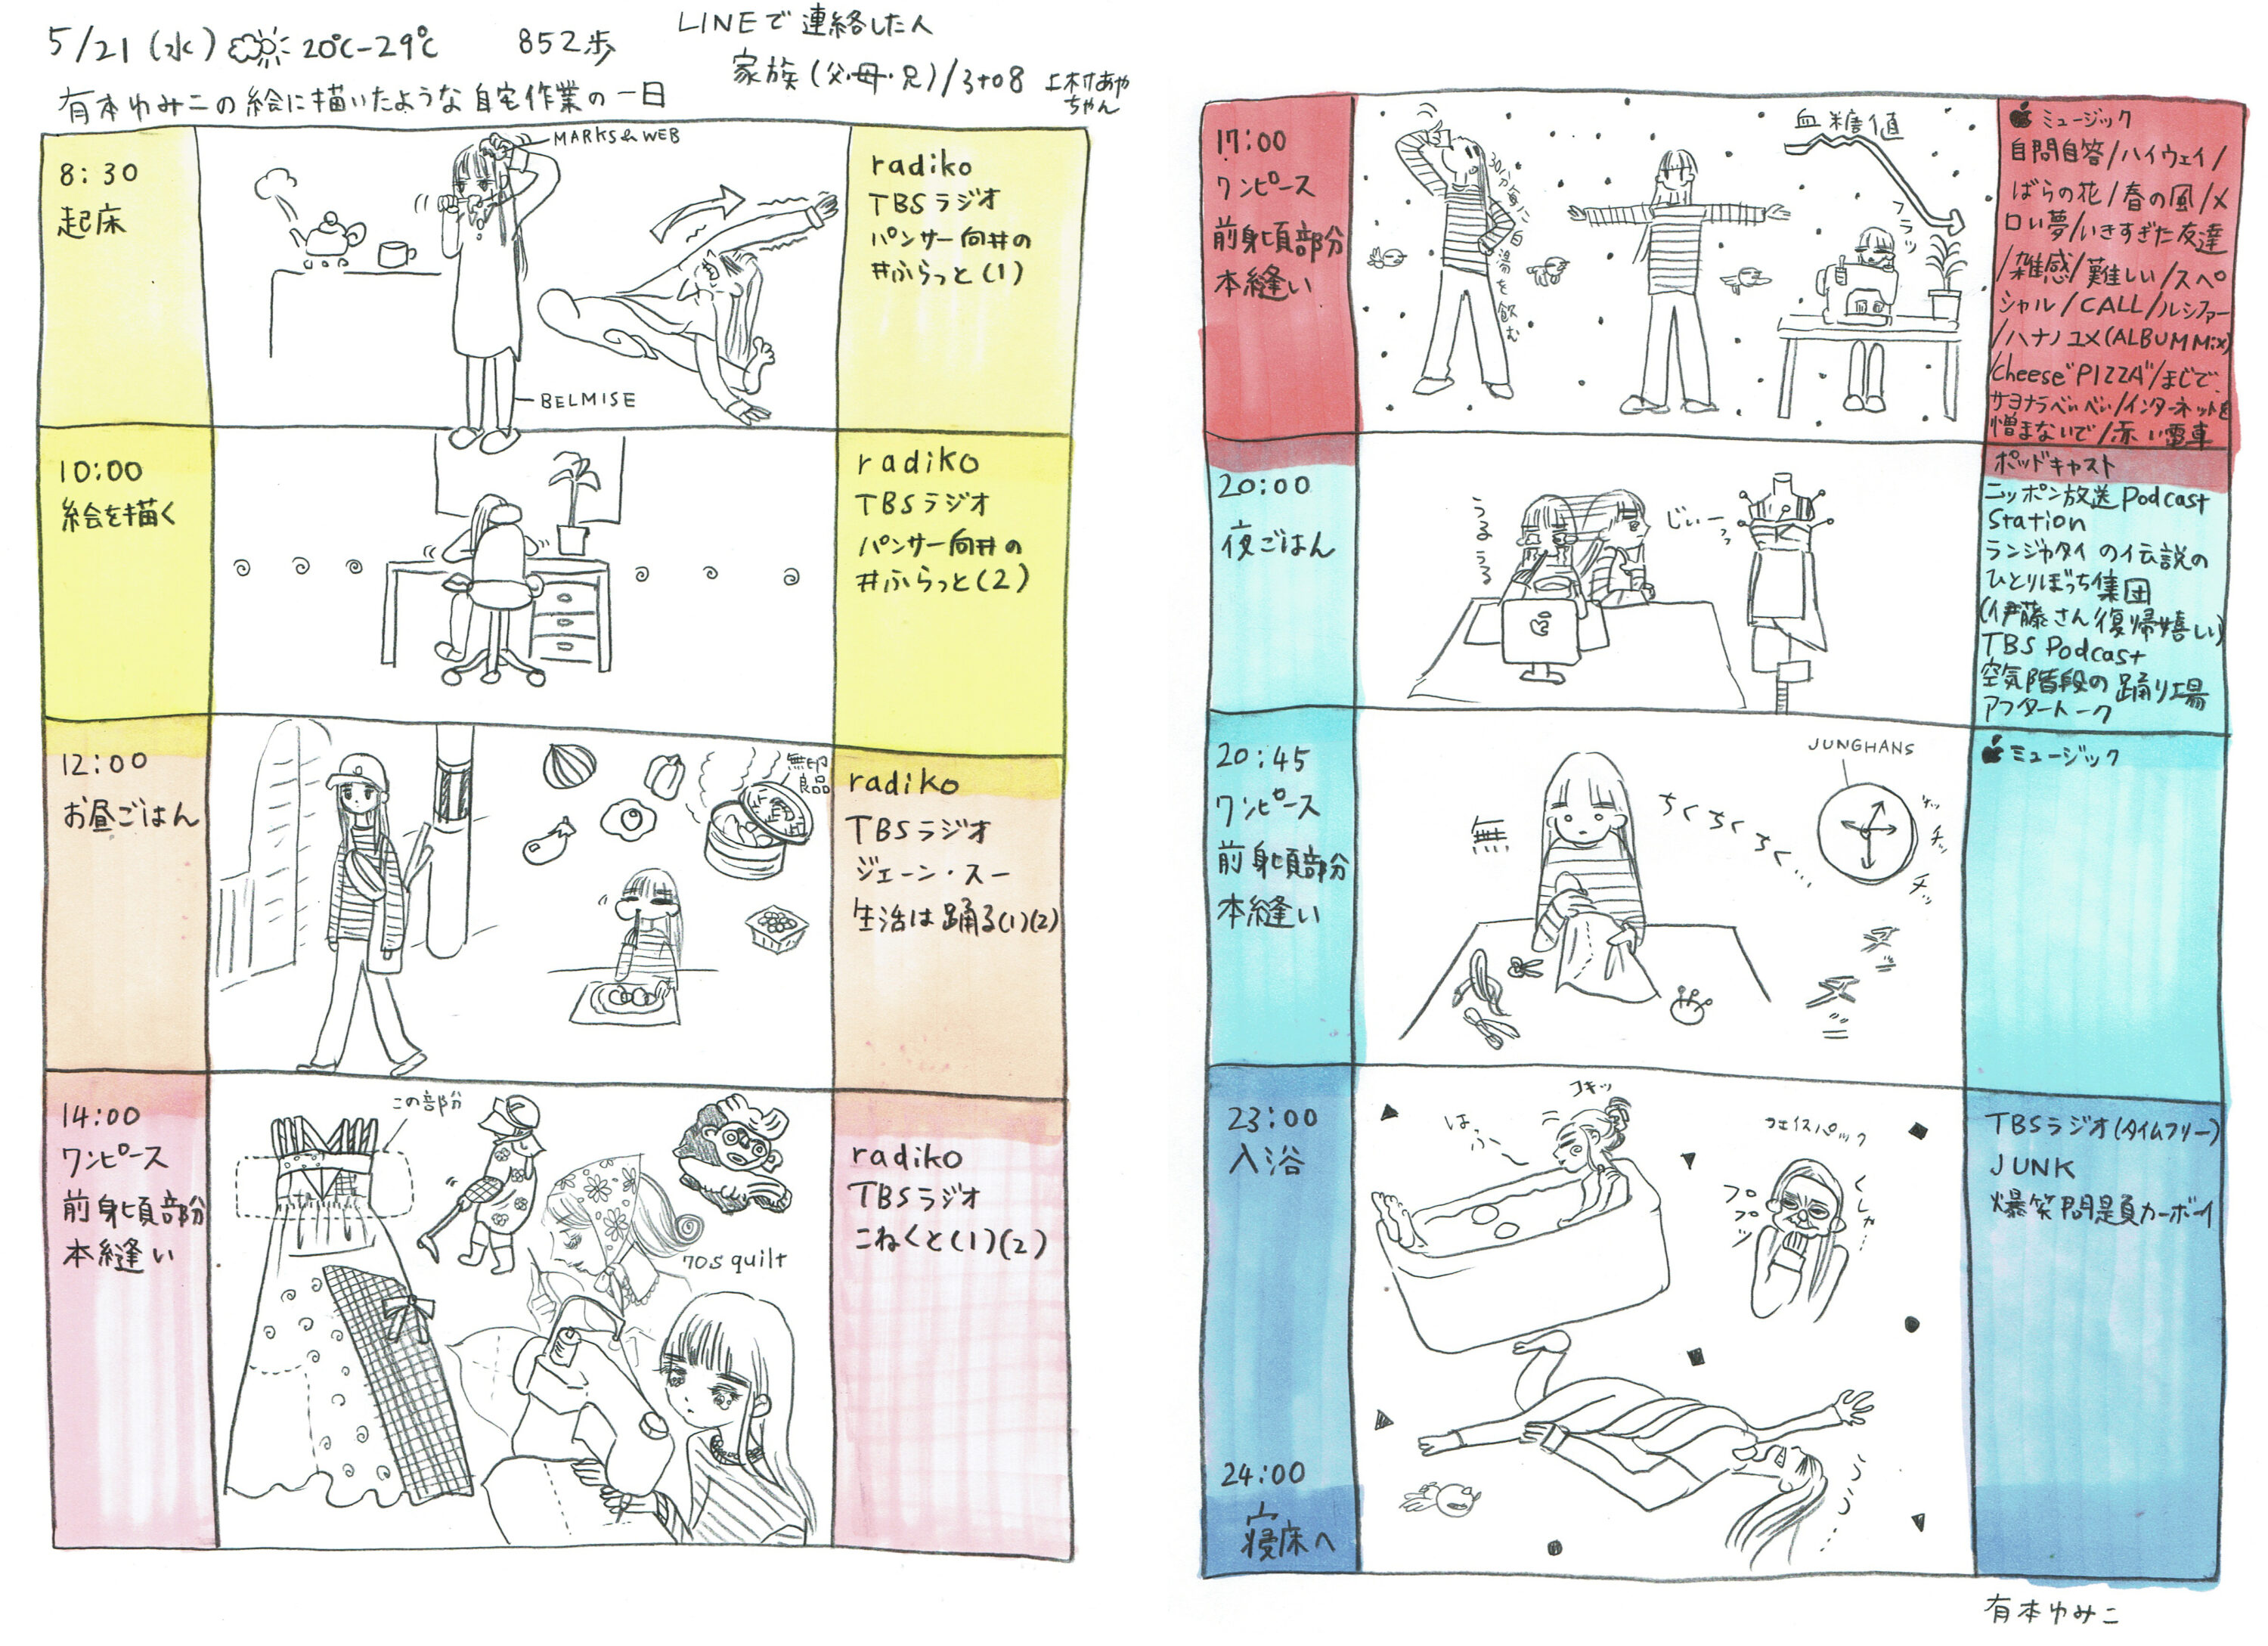 5/21(水) 20℃-29℃ 852歩
LINEで連絡した人
家族(父・母・兄)/3to8 上村あや
ちゃん
有本ゆみこの絵に描いたような自宅作業の一日
8:30
起床
MARKS&WEB
BELMISE
radiko
TBSラジオ
パンサー向井の
#ふらっと(1)
10:00
絵を描く
radiko
TBSラジオ
パンサー向井の
#ふらっと(2)
12:00
お昼ごはん
無印
良品
radiko
TBSラジオ
ジェーン・スー
生活は踊る(1)(2)
14:00
ワンピース
前身頃部分
本縫い
この部分
70s quilt
radiko
TBSラジオ
こねくと(1)(2)
17:00
ワンピース
前身頃部分
本縫い
30分毎に白湯を飲む
血糖値
フラッ
ミュージック
自問自答/ハイウェイ/
ばらの花/春の風/メ
ロい夢/いきすぎた友達
/雑感/難しい/スペ
シャル/CALL/ルシファー
/ハナノユメ(ALBUM Mix)
/Cheese"PIZZA"/まじで
サヨナラべいべい/インターネットを
憎まないで/赤い電車
20:00
夜ごはん
うるうる
じぃーっ
ポッドキャスト
ニッポン放送 Podcast
Station
ランジャタイの伝説の
ひとりぼっち集団
(伊藤さん復帰嬉しい)
TBS Podcast
空気階段の踊り場
アフタートーク
20:45
ワンピース
前身頃部分
本縫い
無
ちくちくちく…
JUNGHANS
チッ
チッ
チッ
ミュージック
23:00
入浴
はふ〜
コキッ
フェイスパック
プププッ
くしゃ…
TBSラジオ(タイムフリー)
JUNK
爆笑問題カーボーイ
24:00
寝床へ
うう…
有本ゆみこ